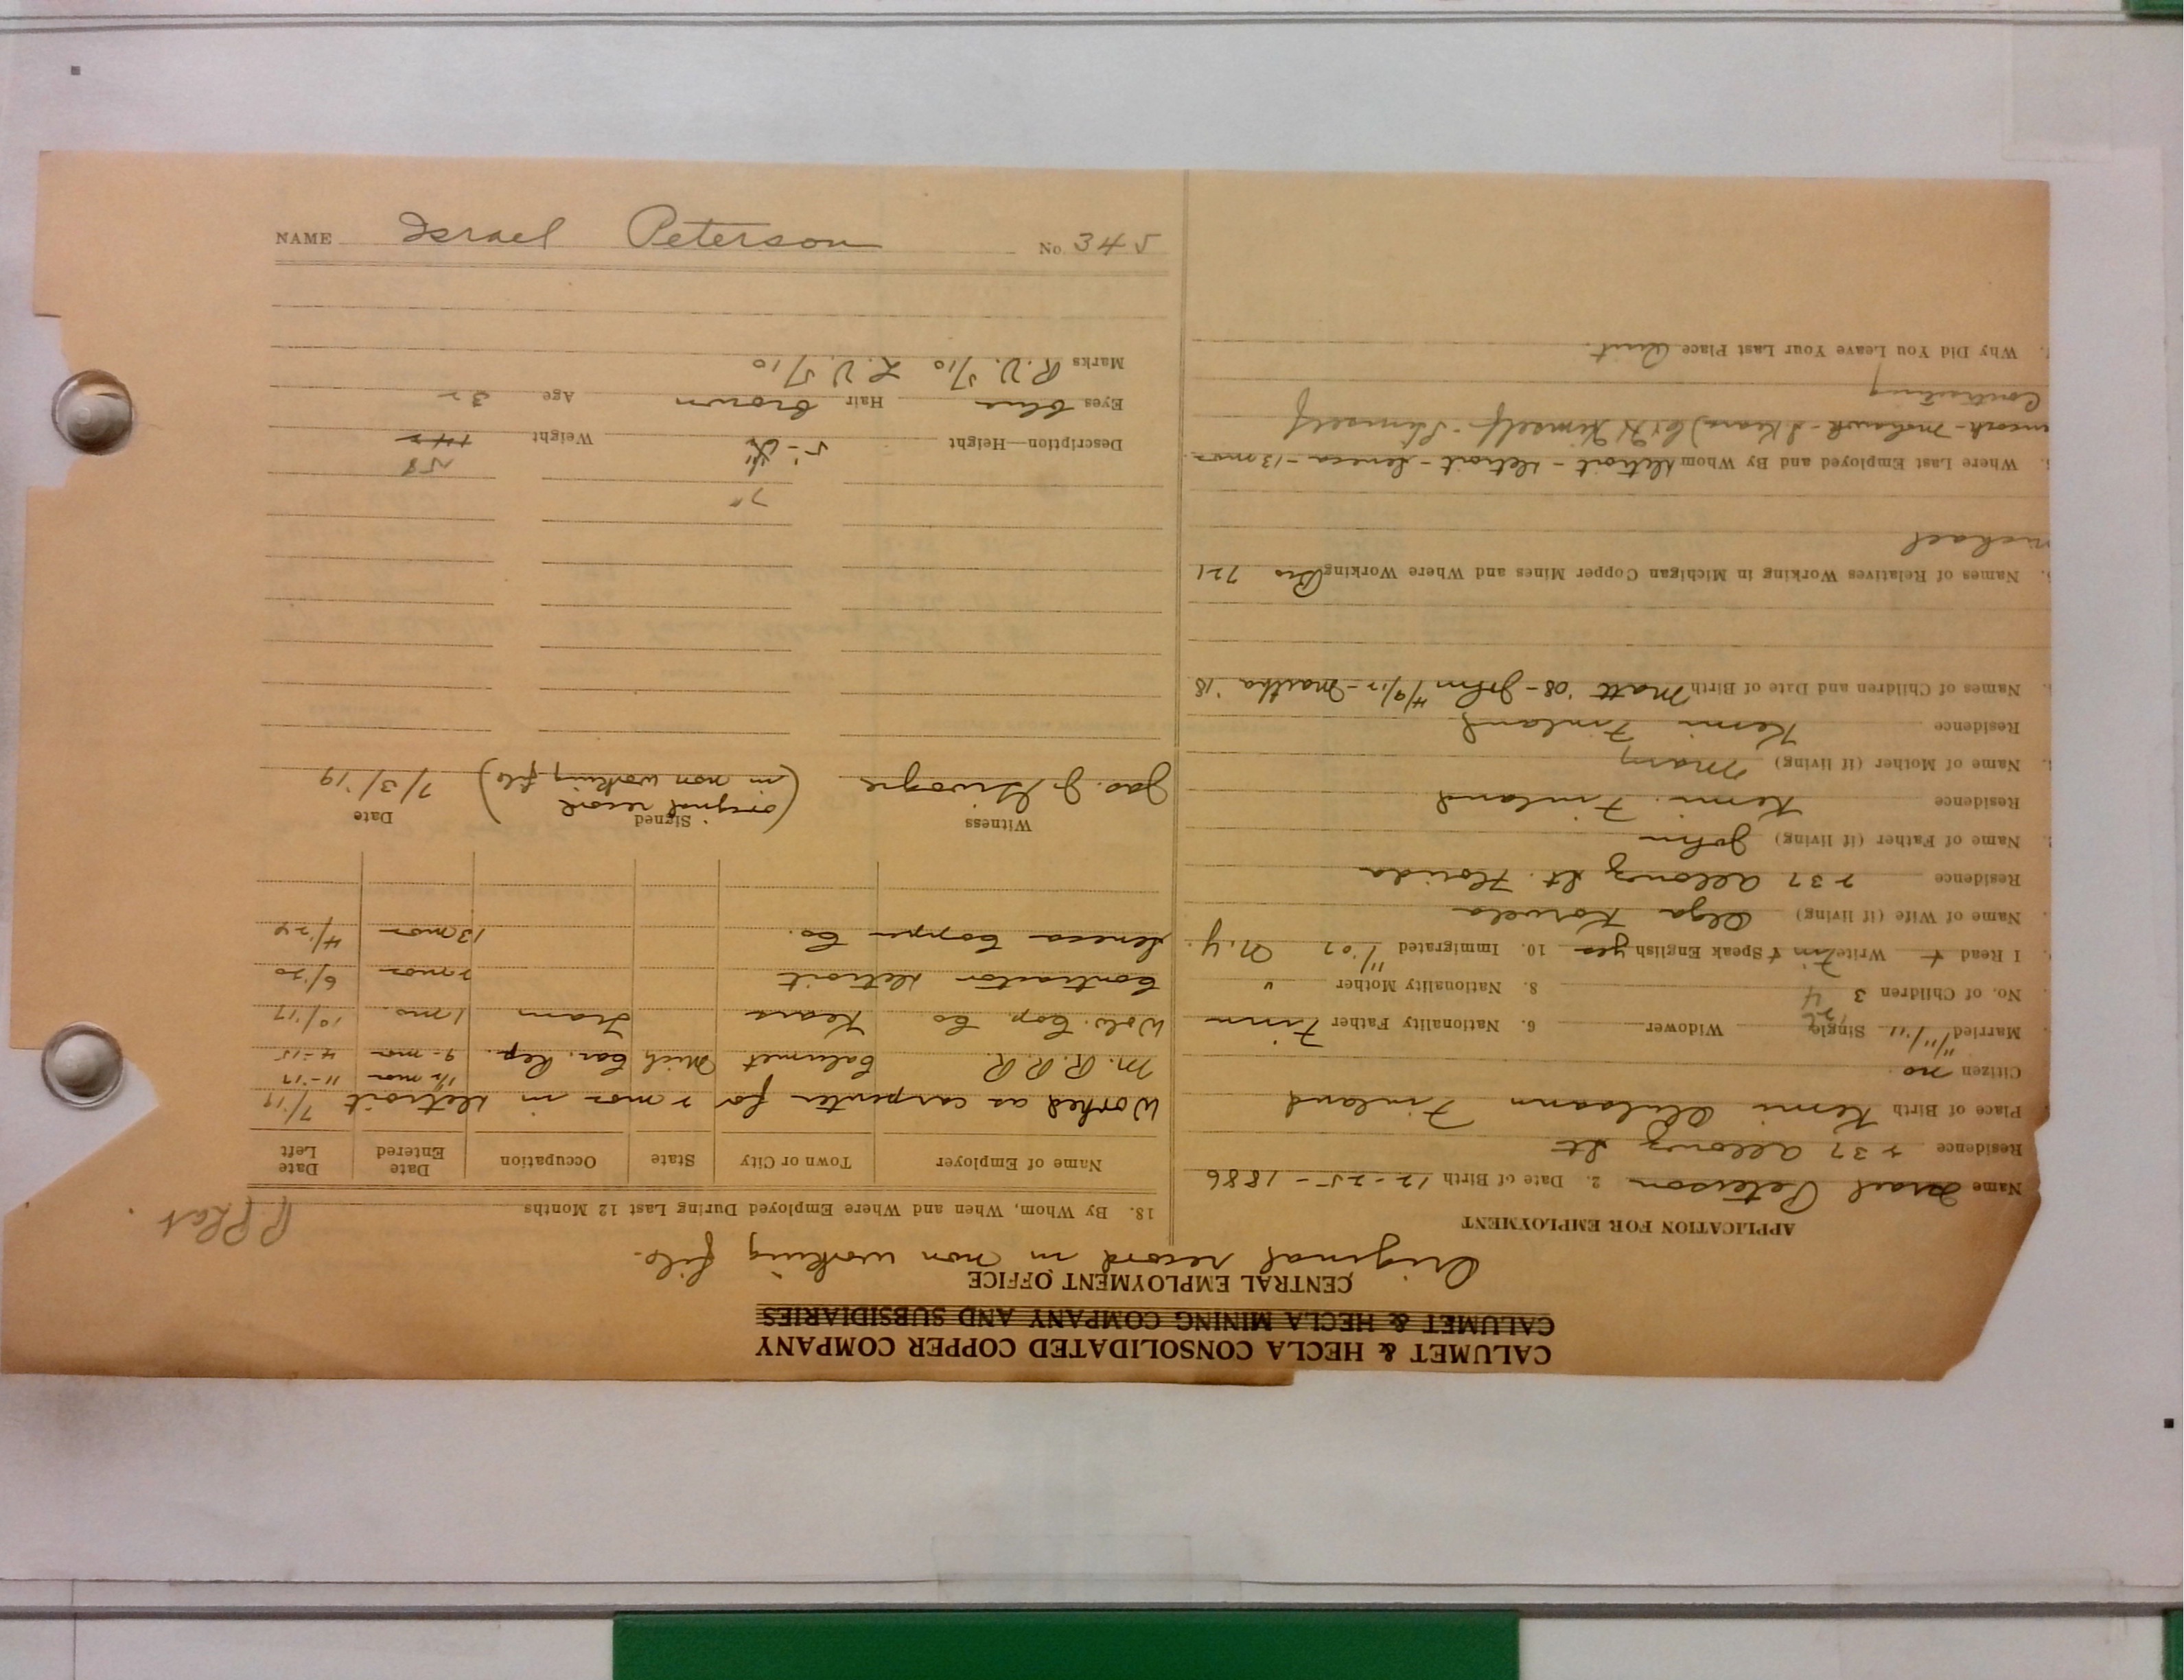 NAME Israel Peterson No. 345
CALUMET & HECLA CONSOLIDATED COPPER COMPANY
CALUMET & HECLA MINING COMPANY AND SUBSIDIARIES
CENTRAL EMPLOYMENT OFFICE
Original record in non working file.
APPLICATION FOR EMPLOYMENT
Name Israel Peterson 2. Date of Birth 12-25-1886
Residence 237 Allouez St
Place of Birth Kemi Finland
Citizen no.
Married 11/11/'11 Single Widower 6. Nationality Father Finn
No. of Children 3 4 8. Nationality Mother "
I Read + Write Finn + Speak English yes 10. Immigrated 11/07 N.Y.
Name of Wife (if living) Olga
Residence 237 Allouez St. Florida
Name of Father (if living) John
Residence Kemi. Finland
Name of Mother (if living) Mary
Residence Kemi Finland
Names of Children and Date of Birth Matt '08 - John 4/9/12 - Martha '18
Names of Relatives Working in Michigan Copper Mines and Where Working Bro 721
Where Last Employed and By Whom Detroit - Detroit - Seneca - 13 mos.
Mohawk - Himself - Himself
Contracting
Why Did You Leave Your Last Place Quit.
18. By Whom, When and Where Employed During Last 12 Months
Name of Employer Town or City State Occupation Date Entered Date Left
Worked as carpenter for 2 mos in Detroit 7/19
1½ mos 11-17
M. R.R.R. Calumet Mich Car. Rep. 9-mos 4-15
Wolv. Cop. Co Kears Tram 1 mo. 10/17
Contractor Detroit 2 mos 6/20
Seneca Copper Co. 13 mos 4/24
Witness Signed Date
Jas. J. (original record in non working file) 7/3/19
7"
58
Description—Height 5'- Weight 142
Eyes blue Hair brown Age 32
Marks R.V. 5/10 L.V. 5/10